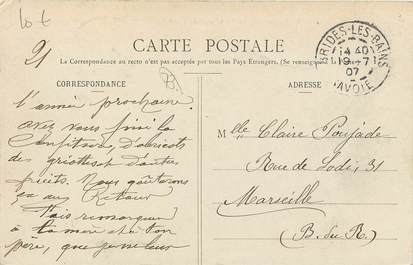 lot
21
CARTE POSTALE
La Correspondance au recto n'est pas acceptée par tous les Pays Étrangers. (Se renseigner
CORRESPONDANCE
ADRESSE
BRIDES-LES-BAINS
14 40
19-7
07
SAVOIE
l'année prochaine.
avez vous fini la
Confiture, d'abricots
des griottes et d'autres
fruits. Nous goûterons
ça au Retour
Fais remarquer
à ta mère et à ton
père, que je
Mlle Claire Poujade
Rue de Lodi, 31
Marseille
(B. du R.)